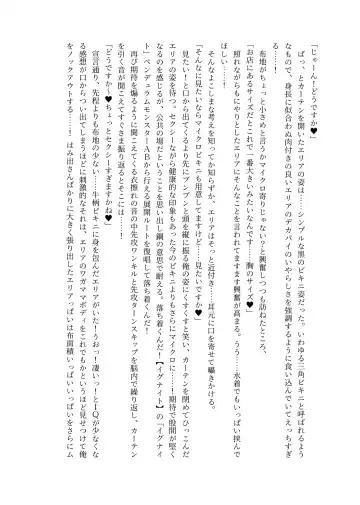 「じゃーん!どうですか♥」
　ばっ、とカーテンを開いたエリアの姿は……シンプルな黒のビキニ姿だった。いわゆる三角ビキニと呼ばれるよう
なもので、身長に似合わぬ肉付きの良いエリアのデカパイのいやらしさを強調するように食い込んでいてえっちすぎ
る!
　布地がちょっと小さめと言うかマイクロ寄りじゃない?と興奮しつつも訪ねたところ、
「お店にあるサイズだとこれで一番大きいみたいなんです……胸のサイズ♥」
　照れながらもにやりとしたエリアにそんなことを言われてますます興奮が高まる。うう……水着でもいっぱい挟んで
ほしい……
　そんなよこしまな考えを知ってか知らずか、エリアはそっと近付き……耳元に口を寄せて囁きかける。
「そんなに見たいならマイクロビキニも用意してますけど……見たいですか♥」
　見たい!と口から出てくるより先にブンブンと頭を縦に振る俺の姿にくすくすと笑い、カーテンを閉めてひっこんだ
エリアの姿を待つ。セクシーながら健康的な印象もあった今のビキニよりもさらにマイクロに……!期待で股間が堅く
なるのを感じるが、公共の場だということを思い出し鋼の意思で耐える。落ち着くんだ!【イグナイト】の「イグナイ
ト」ペンデュラムモンスターABから行える展開ルートを復唱して落ち着くんだ!
　再び期待を煽るように聞こえてくる衣擦れの音の中先攻ワンキルと先攻ターンスキップを脳内で繰り返し、カーテン
を引く音が聞こえてすぐさま振り返るとそこには……!
「どうですか～♥ちょっとセクシーすぎますかね♥」
　宣言通り、先程よりも布地の少ない……牛柄ビキニに身を包んだエリアがいた!うおっ!凄いっ!とIQが少なくな
る感想が口からつい出てしまうほどに刺激的なそれは、エリアのワガママボディをこれでもかというほど見せつけて俺
をノックアウトする……はみ出さんばかりに大きく張り出したエリアっぱいは布面積いっぱいいっぱいをさらにム